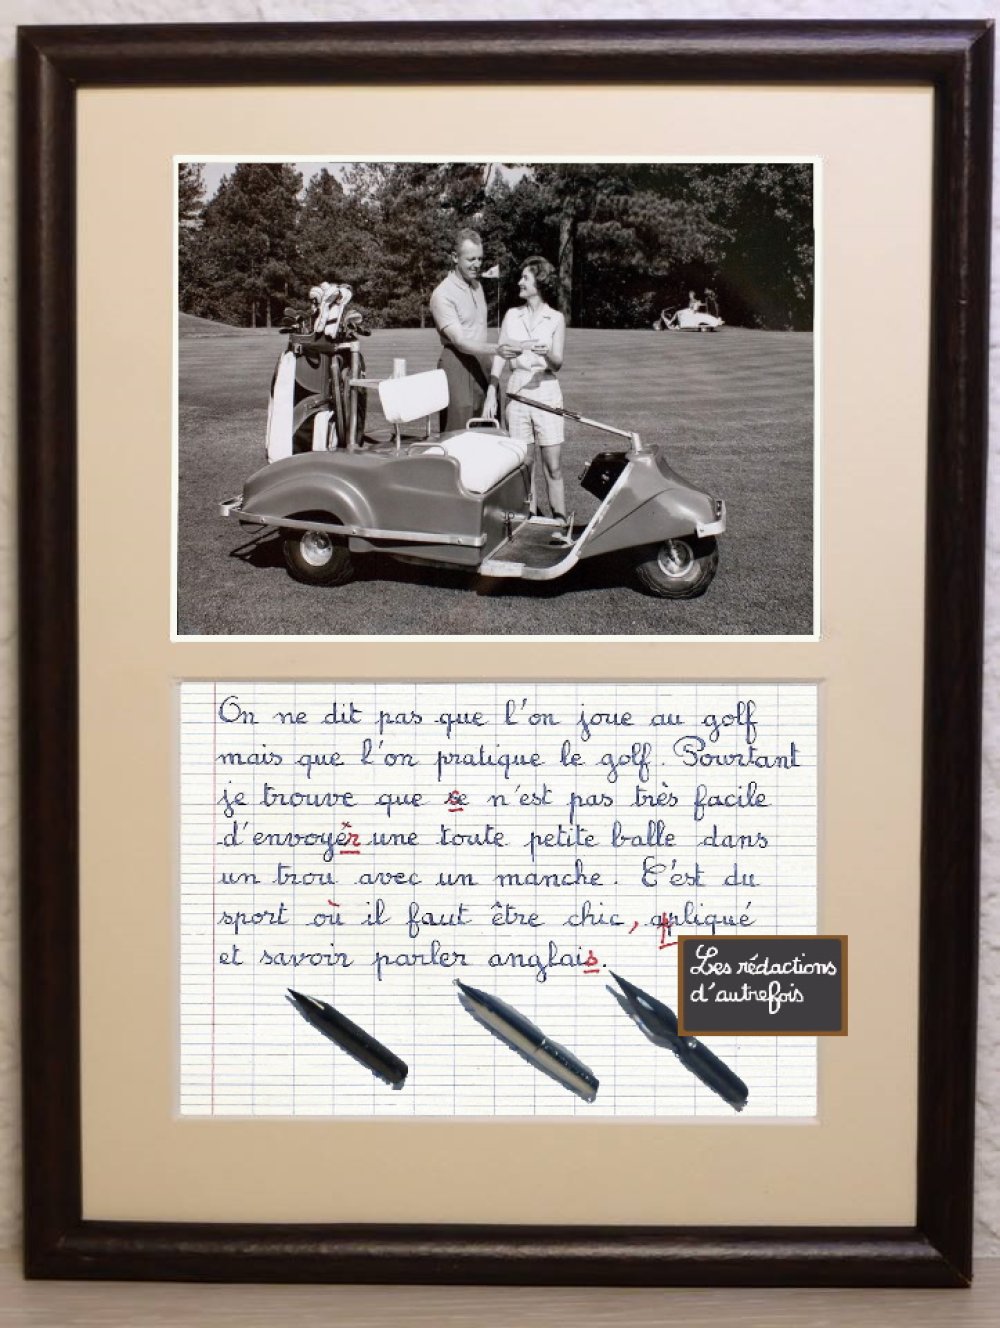 On ne dit pas que l'on joue au golf
mais que l'on pratique le golf. Pourtant
je trouve que ce n'est pas très facile
d'envoyer une toute petite balle dans
un trou avec un manche. C'est du
sport où il faut être chic, apliqué
et savoir parler anglais.
Les rédactions
d'autrefois